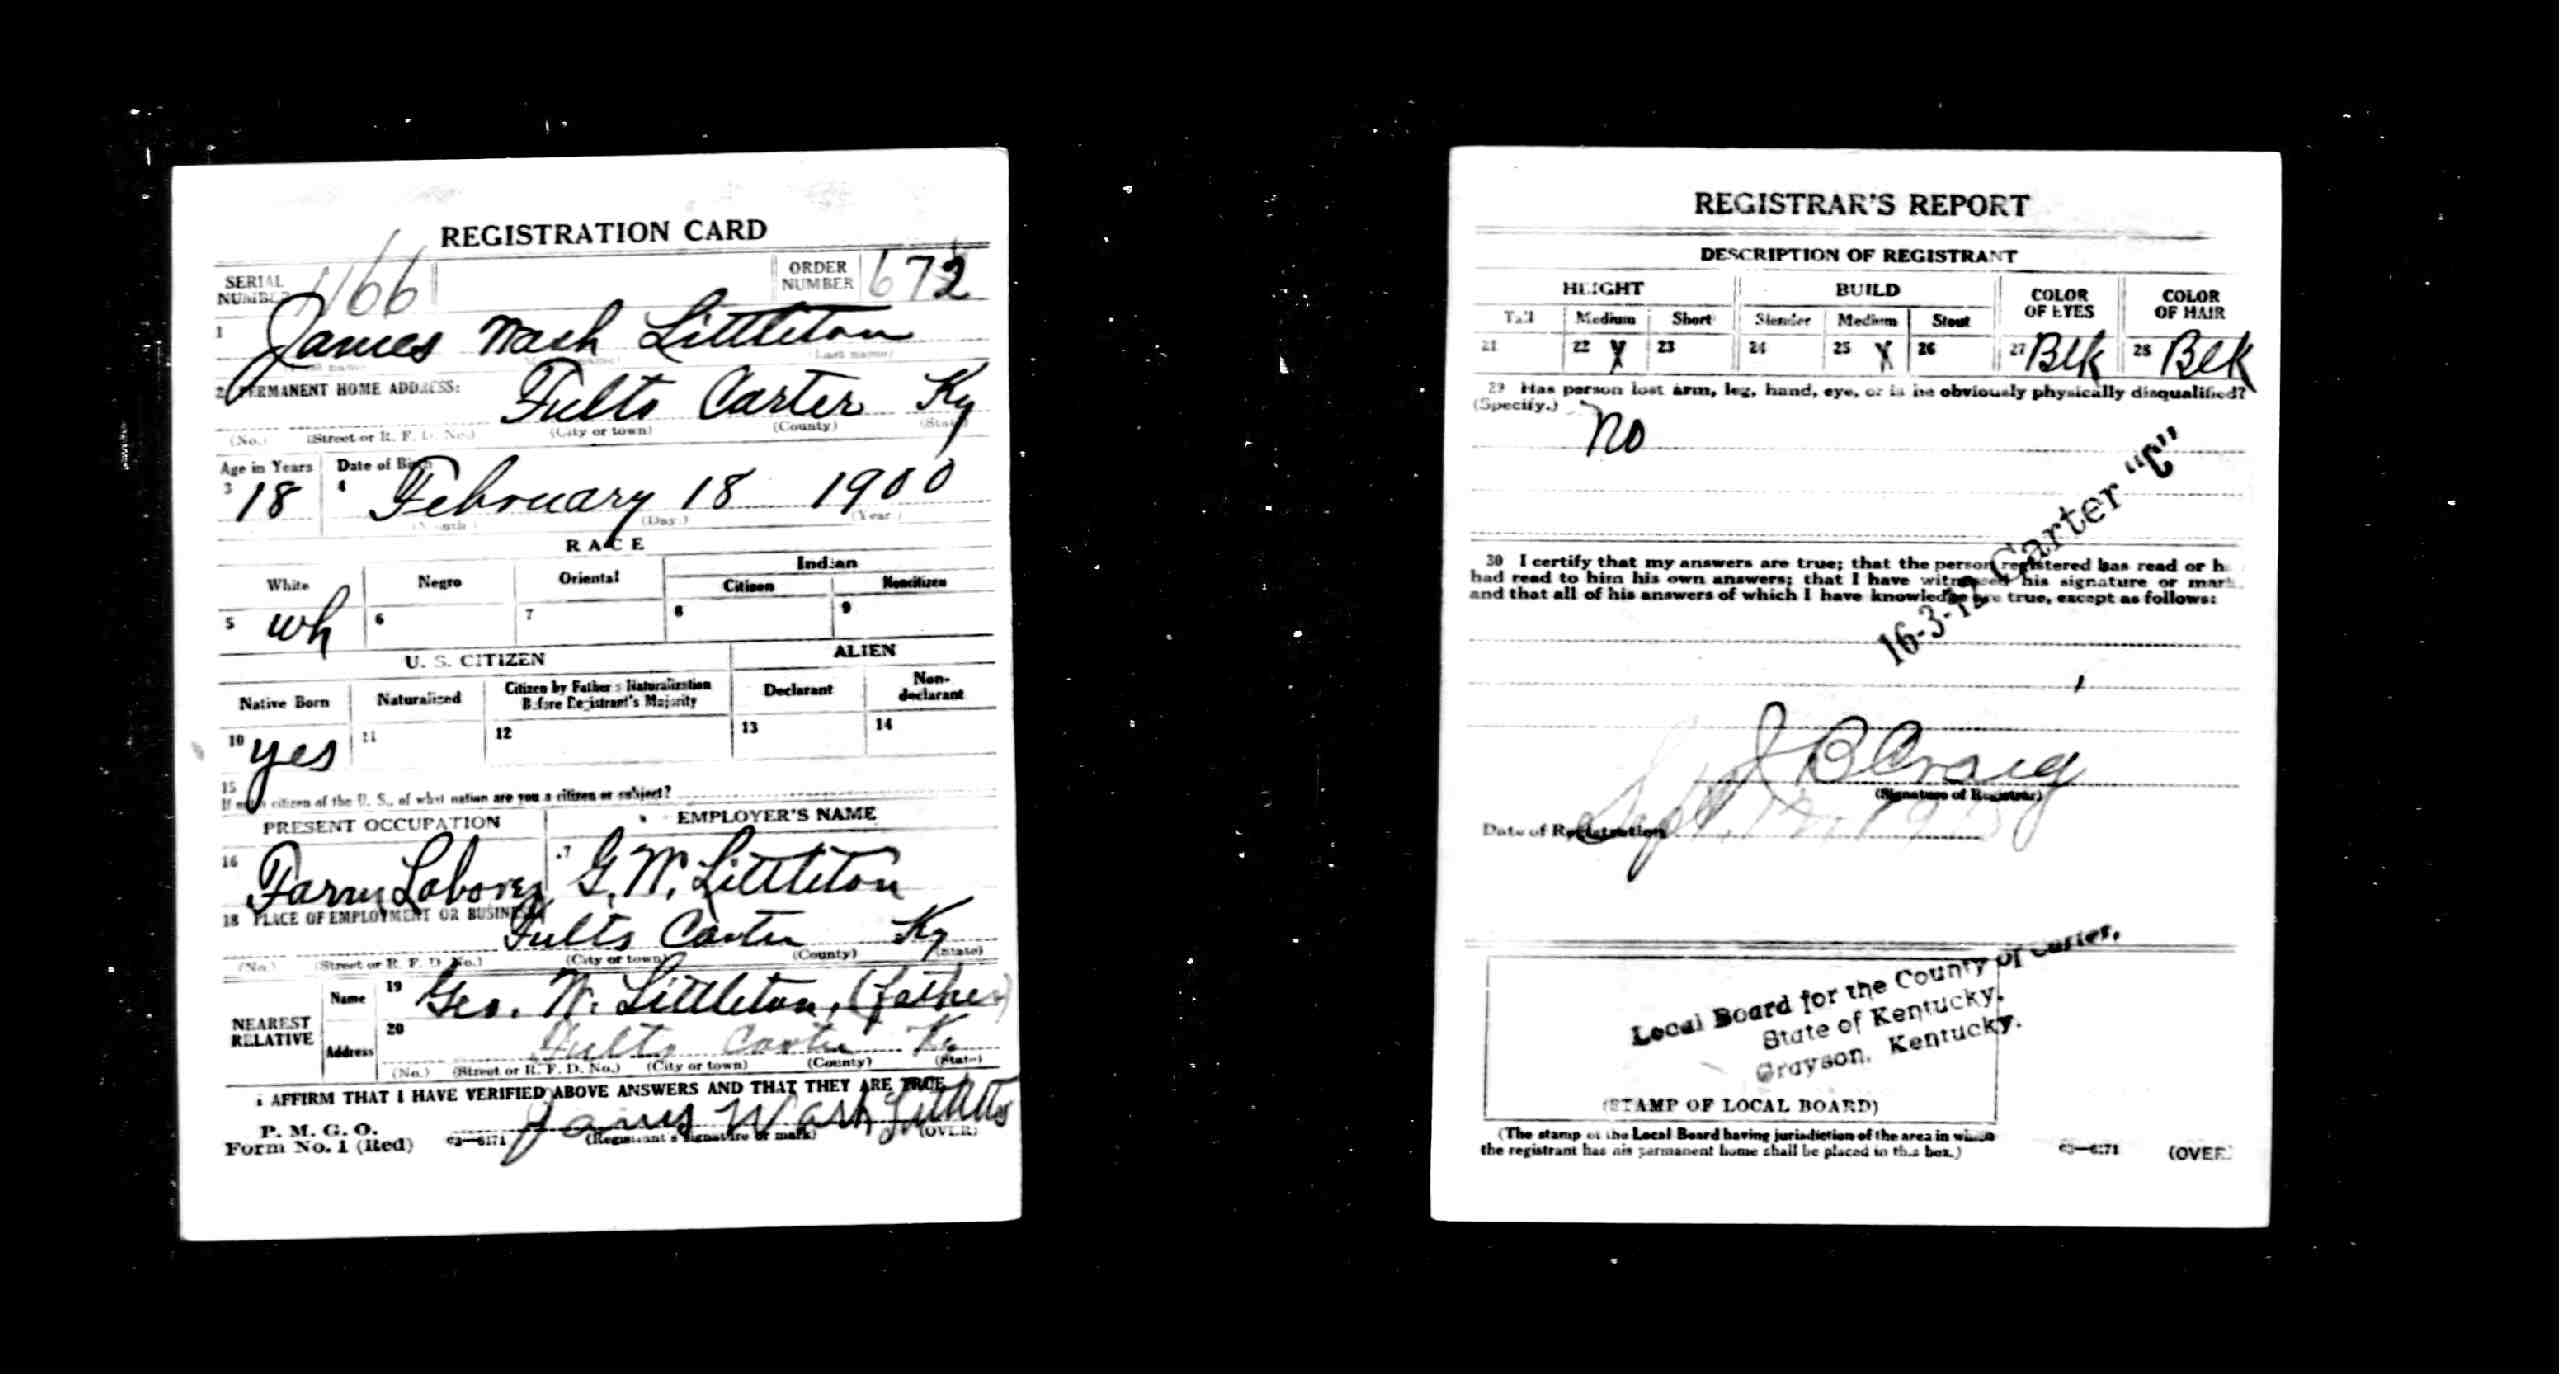 REGISTRATION CARD
SERIAL NUMBER 1166
ORDER NUMBER 672
1 James Wash Littleton
(Last name)
2 PERMANENT HOME ADDRESS: Fults Carter Ky
(No.) (Street or R. F. D. No.) (City or town) (County) (State)
Age in Years Date of Birth
3 18 4 February 18 1900
(Month) (Day) (Year)
RACE
White Negro Oriental Indian
Citizen Noncitizen
5 wh 6 7 8 9
U. S. CITIZEN ALIEN
Native Born Naturalized Citizen by Father's Naturalization Before Registrant's Majority Declarant Non-declarant
10 yes 11 12 13 14
15
If not a citizen of the U. S., of what nation are you a citizen or subject?
PRESENT OCCUPATION EMPLOYER'S NAME
16 Farm Laborer 17 G. W. Littleton
18 PLACE OF EMPLOYMENT OR BUSINESS
Fults Carter Ky
(No.) (Street or R. F. D. No.) (City or town) (County) (State)
NEAREST RELATIVE
Name 19 Geo. W. Littleton, (father)
Address 20 Fults Carter Ky
(No.) (Street or R. F. D. No.) (City or town) (County) (State)
I AFFIRM THAT I HAVE VERIFIED ABOVE ANSWERS AND THAT THEY ARE TRUE
P. M. G. O.
Form No. 1 (Red) 03—6171 James Wash Littleton
(Registrant's signature or mark) (OVER)
REGISTRAR'S REPORT
DESCRIPTION OF REGISTRANT
HEIGHT BUILD COLOR OF EYES COLOR OF HAIR
Tall Medium Short Slender Medium Stout
21 22 X 23 24 25 X 26 27 Blk 28 Blk
29 Has person lost arm, leg, hand, eye, or is he obviously physically disqualified?
(Specify.) no
16-3-12 Carter "C"
30 I certify that my answers are true; that the person registered has read or h
had read to him his own answers; that I have witnessed his signature or mark
and that all of his answers of which I have knowledge are true, except as follows:
J B Craig
(Signature of Registrar)
Date of Registration Sept. 12, 1918
Local Board for the County of Carter,
State of Kentucky.
Grayson, Kentucky.
(STAMP OF LOCAL BOARD)
(The stamp of the Local Board having jurisdiction of the area in which
the registrant has his permanent home shall be placed in this box.)
03—6171 (OVER)